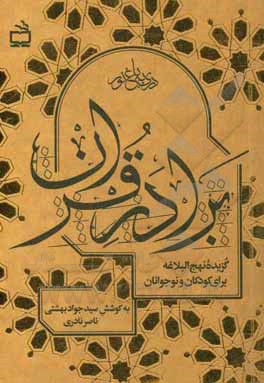 برادر قرآن
گزیدهٔ نهج‌البلاغه
برای کودکان و نوجوانان
به کوشش سید جواد بهشتی
ناصر نادری